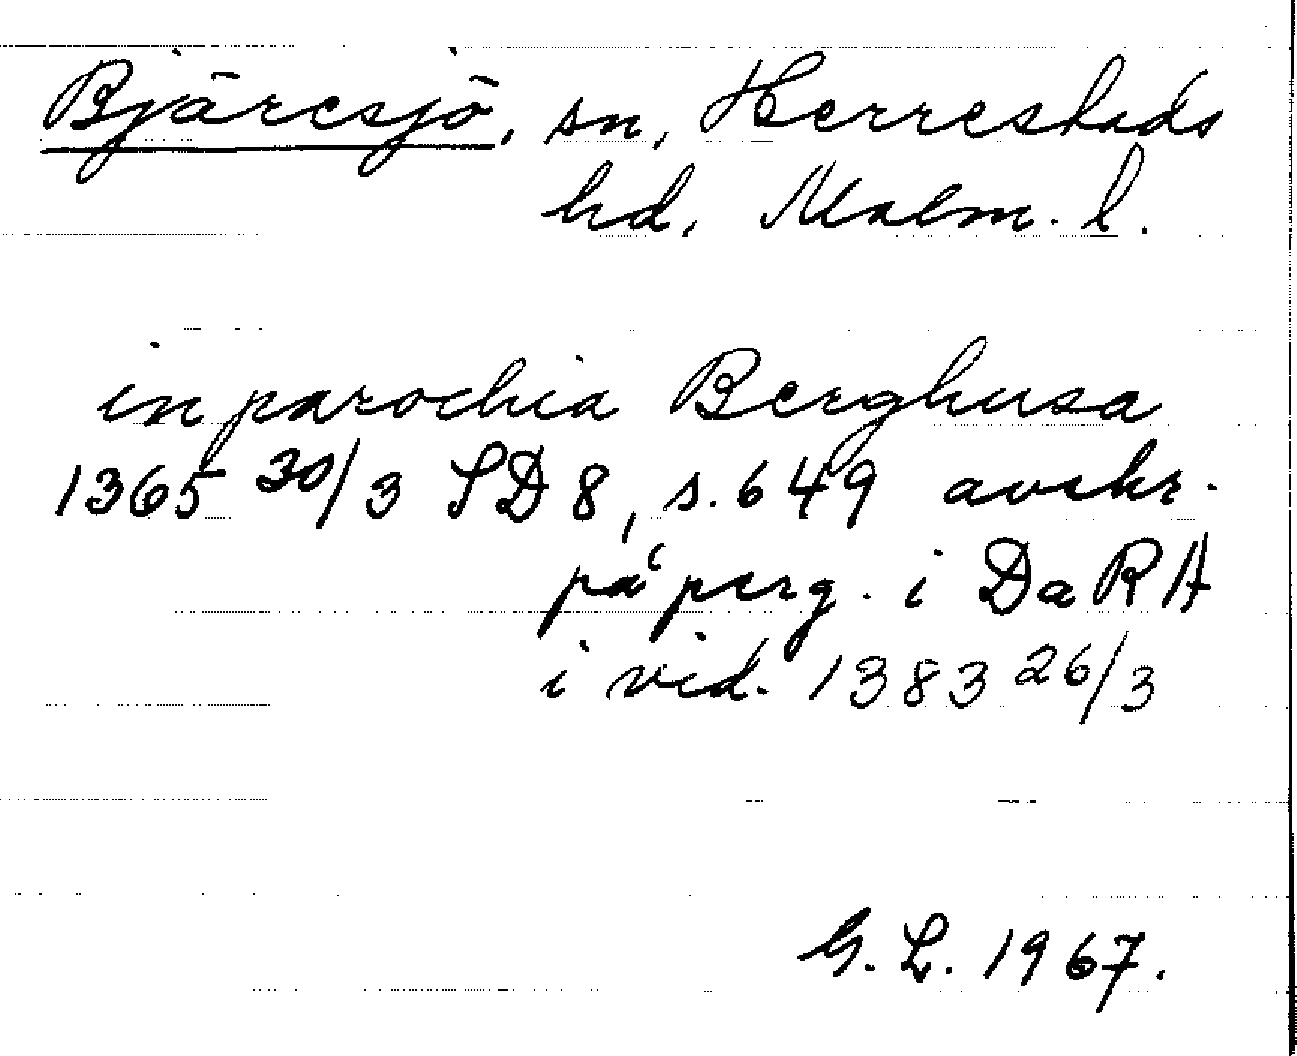 Bjäresjö, sn, Herrestads
hd, Malm. l.
in parochia Berghusa
1365 30/3 SD 8, s. 649 avskr.
på perg. i DaRA
i vid. 1383 26/3
G. L. 1967.